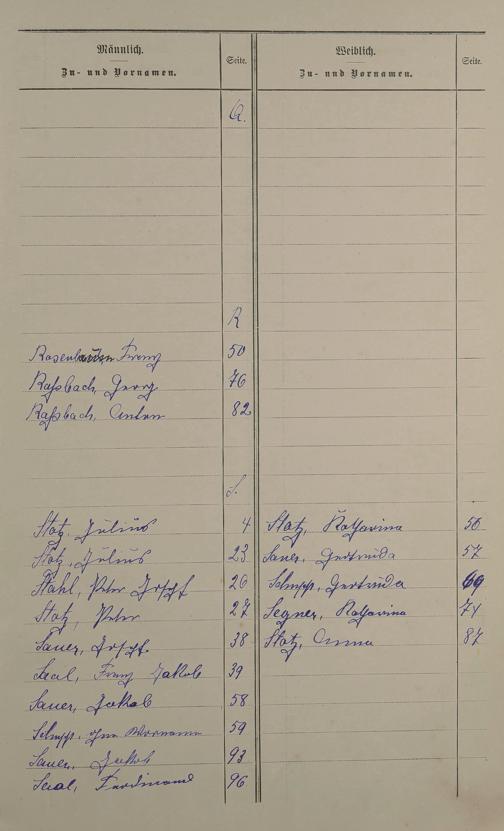 Männlich.
Zu- und Vornamen.
Seite.
Weiblich.
Zu- und Vornamen.
Seite.
Q.
R
Franz 50
Raßbach, Georg 76
Raßbach, Anton 82
S.
Statz, Julius 4
Statz, Julius 23
Stahl, Peter Joseph 26
Statz, Peter 27
Sauer, Joseph. 38
Saal, Franz Jakob 39
Sauer, Jakob 58
Schupp, 59
Sauer, Jakob 93
Saal, Ferdinand 96
Statz, Katharina 56
Sauer, Gertruda 57
Schupp, Gertruda 69
Segner, Katharina 74
Statz, Anna 87